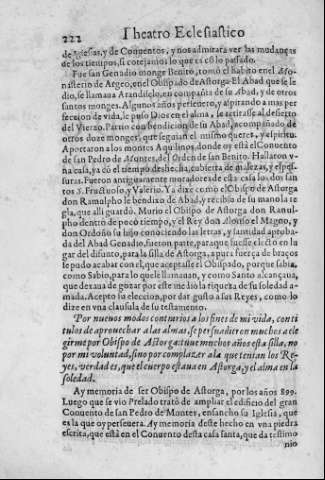 222 Theatro Eclesiastico
de Iglesias, y de Conuentos, y nos admirara ver las mudanças
de los tiempos, si cotejamos lo que es cõ lo passado.
Fue san Genadio monge Benito, tomó el habito en el Mo-
nasterio de Argeo, en el Obispado de Astorga. El Abad que se le
dio, se llamaua Arandiselo, en compañia de su Abad, y de otros
santos monges. Algunos años perseuero, y aspirando a mas per
feccion de vida, le puso Dios en el alma, se retirasse al desierto
del Vierzo. Partio con bendicion de su Abad, acompañado de
otros doze monges, que seguian el mismo querer, y espiritu.
Aportaron a los montes Aquilinos, donde oy está el Conuento
de san Pedro de Montes, del Orden de san Benito. Hallaron v-
na casa, ya cõ el tiempo deshecha, cubierta de malezas, y espe-
suras. Fueron antiguamente moradores de esta casa los dos san
tos S. Frustuoso, y Valerio. Ya dixe como el Obispo de Astorga
don Ranulpho le bendixo de Abad, y recibio de su mano la re
gla, que alli guardó. Murio el Obispo de Astorga don Ranul-
pho dentro de poco tiempo, y el Rey don Alonso el Magno, y
don Ordoño su hijo conociendo las letras, y santidad aproba-
da del Abad Genadio, fueron parte, para que fuesse electo en lu
gar del difunto, para la silla de Astorga, a pura fuerça de braços
se pudo acabar con el, que aceptasse el Obispado, porque sabia,
como Sabio, para lo que le llamauan, y como Santo alcançaua,
que dexaua de gozar por este medio la riqueza de su soledad a-
mada. Acepto su eleccion, por dar gusto a sus Reyes, como lo
dize en vna clausula de su testamento.
Por nueuos modos conturuios a los fines de mi vida, conti
tulos de aprouechar a las almas, se persuadieron muchos a ele
girme por Obispo de Astorga: tuue muchos años esta silla, no
por mi voluntad, sino por complazer a la que tenian los Re-
yes, verdad es, que el cuerpo estaua en Astorga, y el alma en la
soledad.
Ay memoria de ser Obispo de Astorga, por los años 899.
Luego que se vio Prelado trató de ampliar el edificio del gran
Conuento de san Pedro de Montes, ensancho su Iglesia, que
es la que oy perseuera. Ay memoria deste hecho en vna piedra
escrita, que està en el Conuento desta casa santa, que da testimo
nio